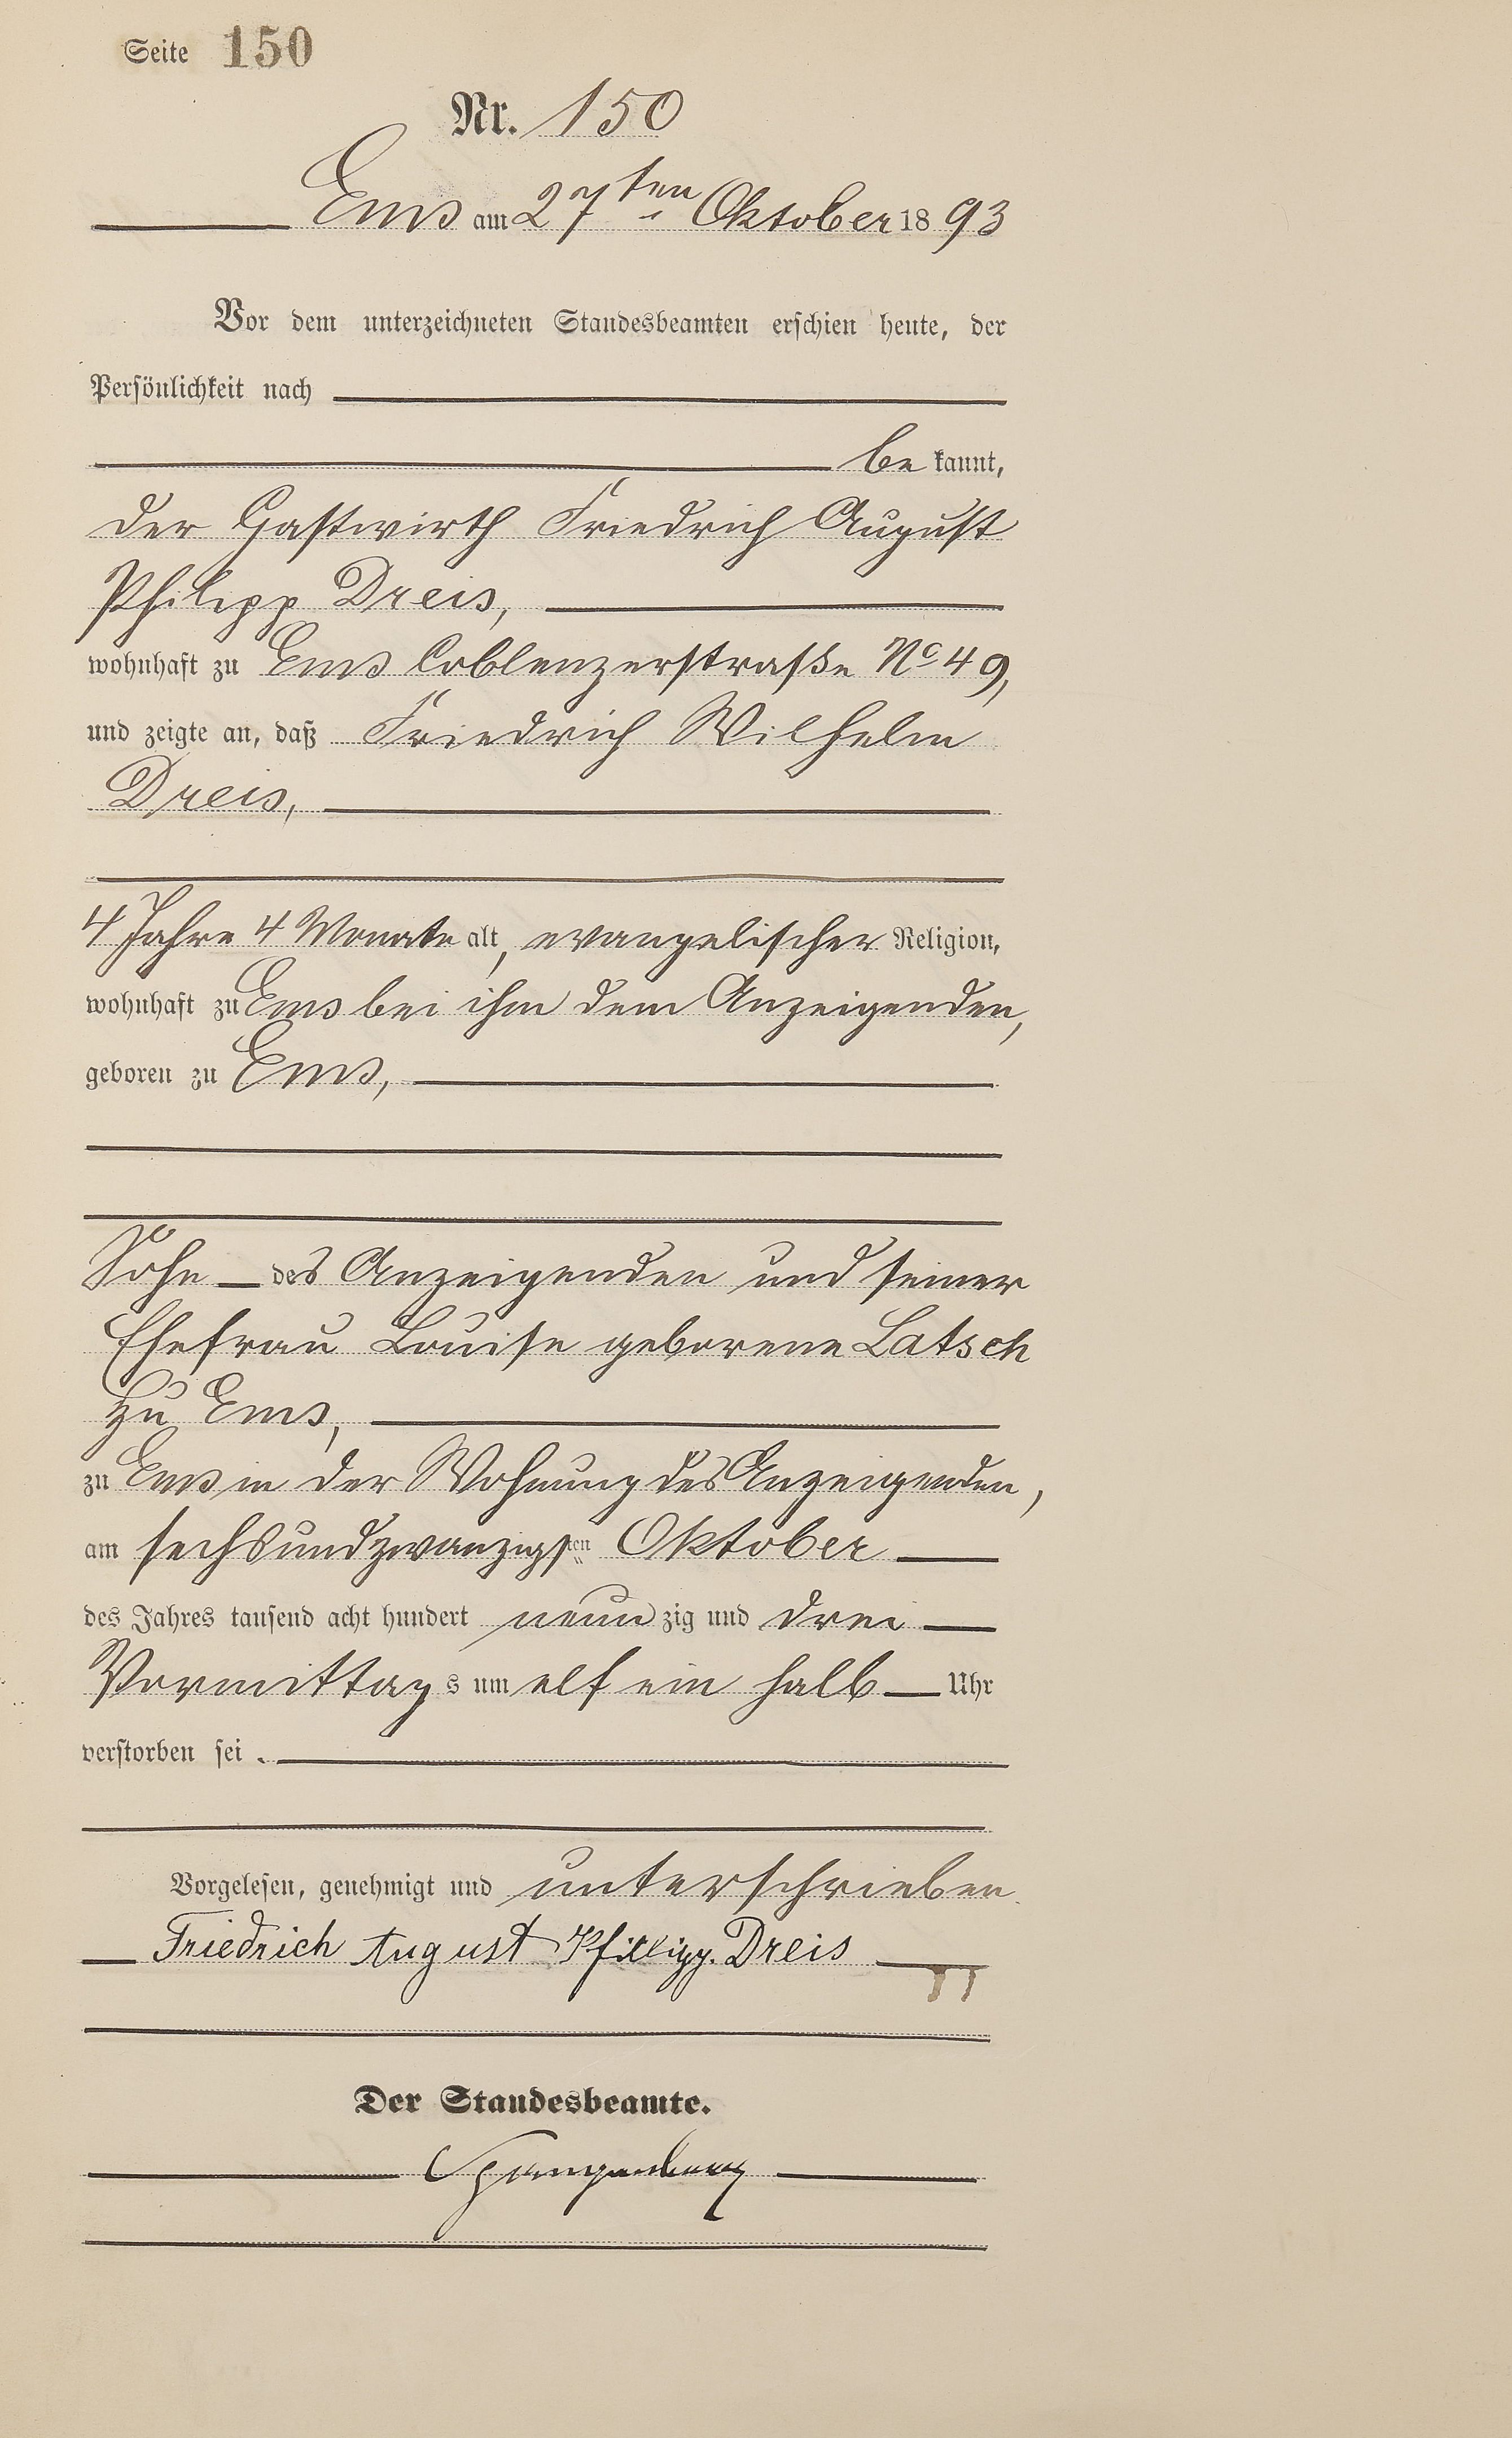 Seite 150
Nr. 150
Ems am 27ten Oktober 1893
Vor dem unterzeichneten Standesbeamten erschien heute, der
Persönlichkeit nach
bekannt,
der Gastwirth Friedrich August
Philipp Dreis,
wohnhaft zu Ems Coblenzerstraße No 49,
und zeigte an, daß Friedrich Wilhelm
Dreis,
4 Jahre 4 Monate alt, evangelischer Religion,
wohnhaft zu Ems bei ihm dem Anzeigenden,
geboren zu Ems,
Sohn des Anzeigenden und seiner
Ehefrau Louise geborene Latsch
zu Ems,
zu Ems in der Wohnung des Anzeigenden,
am sechsundzwanzigsten Oktober
des Jahres tausend acht hundert neunzig und drei
Vormittags um elf ein halb Uhr
verstorben sei.
Vorgelesen, genehmigt und unterschrieben.
Friedrich August Phillipp. Dreis
Der Standesbeamte.
Spangenberg